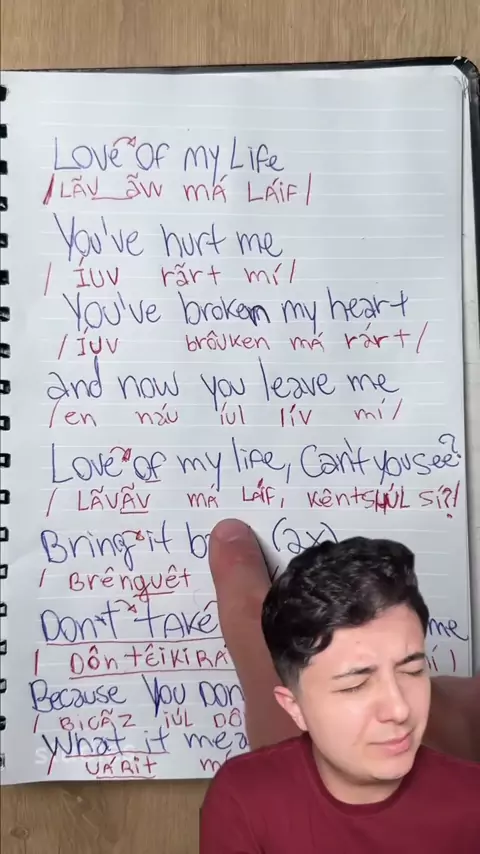 Love of my Life
/LÃV ÃW MÁ LÁIF/
You've hurt me
/ ÍUV rãrt mí/
You've broken my heart
/ ÍUV brôuken má rárt/
and now you leave me
/en náu iúl lív mí/
Love of my life, Can't you see?
/ LÃVÃV MÁ LÁIF, KêntSHÚL SÍ?/
Bring it (2x)
/ Brênguêt
Don't take me
/ Dôn têiKiRA
Because You Don
/ BICÃZ IÚL DÔ
What it mea
/ UÁRit